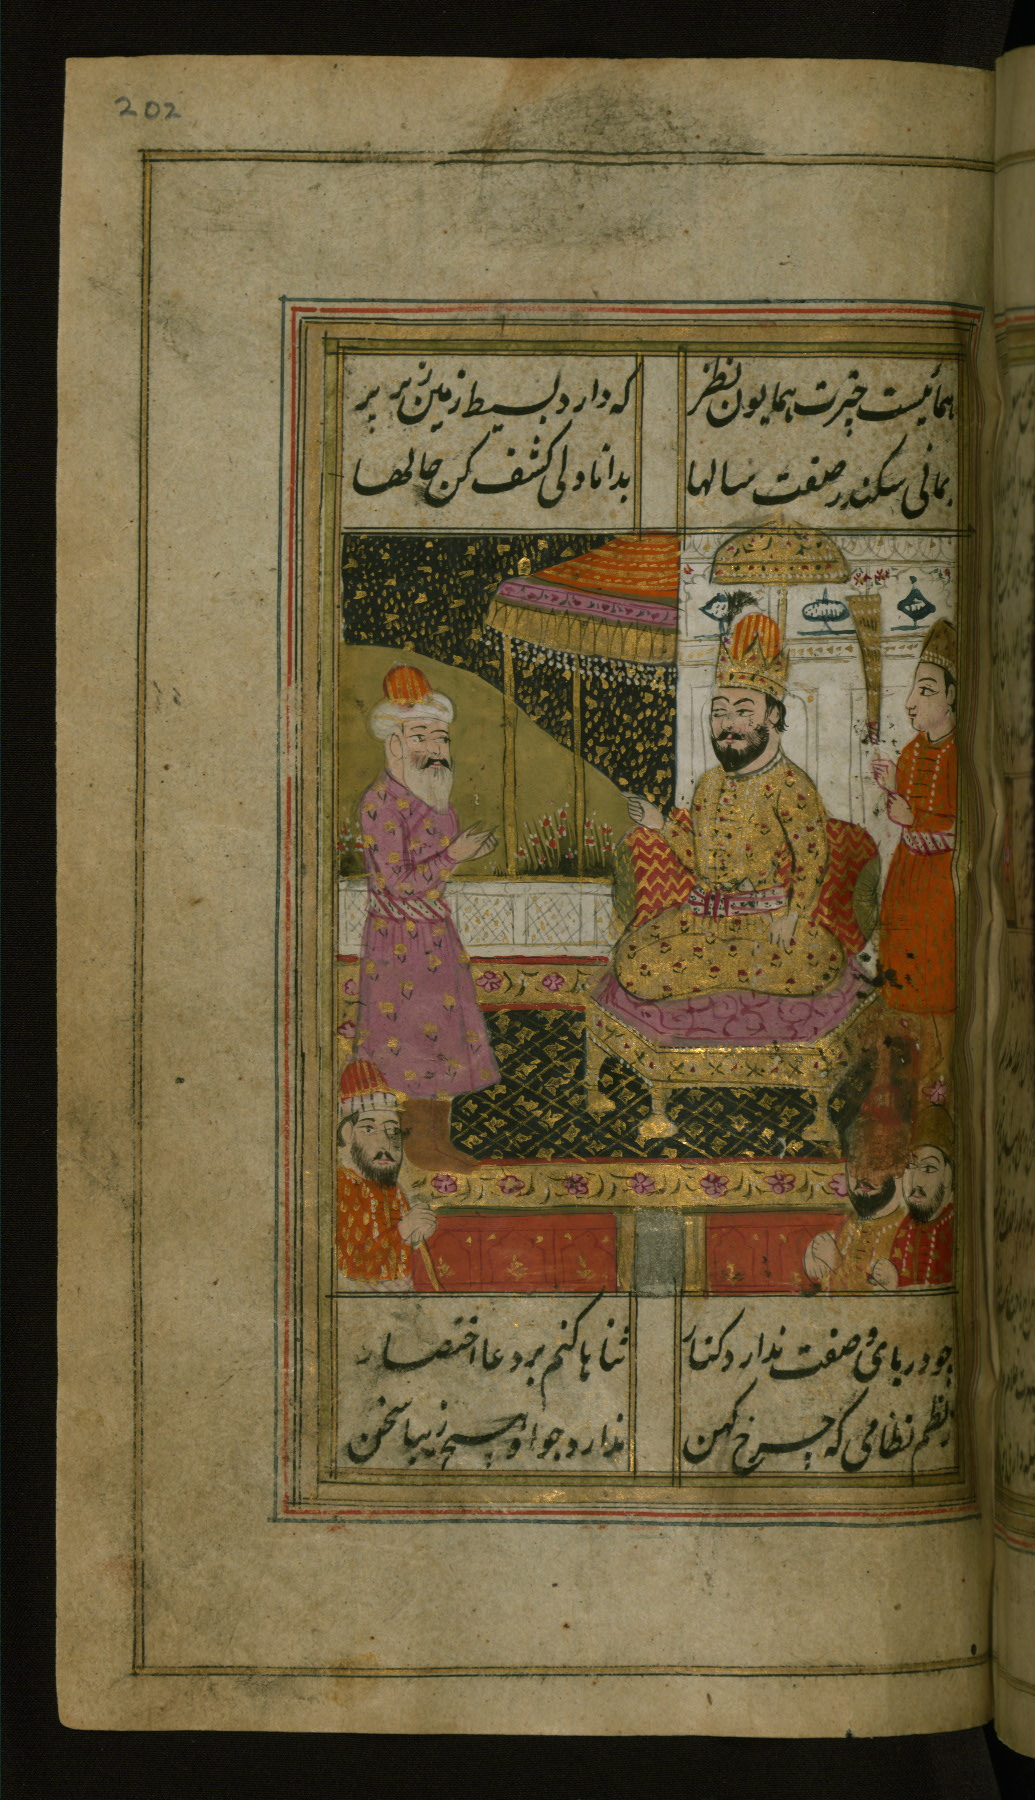 202
همائیست چترت همایون نظر
که دارد بسیط زمین زیر پر
بمانی سکندر صفت سالها
بدانا دلی کشف کن حالها
چو دریای وصفت ندارد کنار
ثناها کنم بر دعا اختصار
ز نظم نظامی که چرخ کهن
ندارد چو او هیچ زیبا سخن